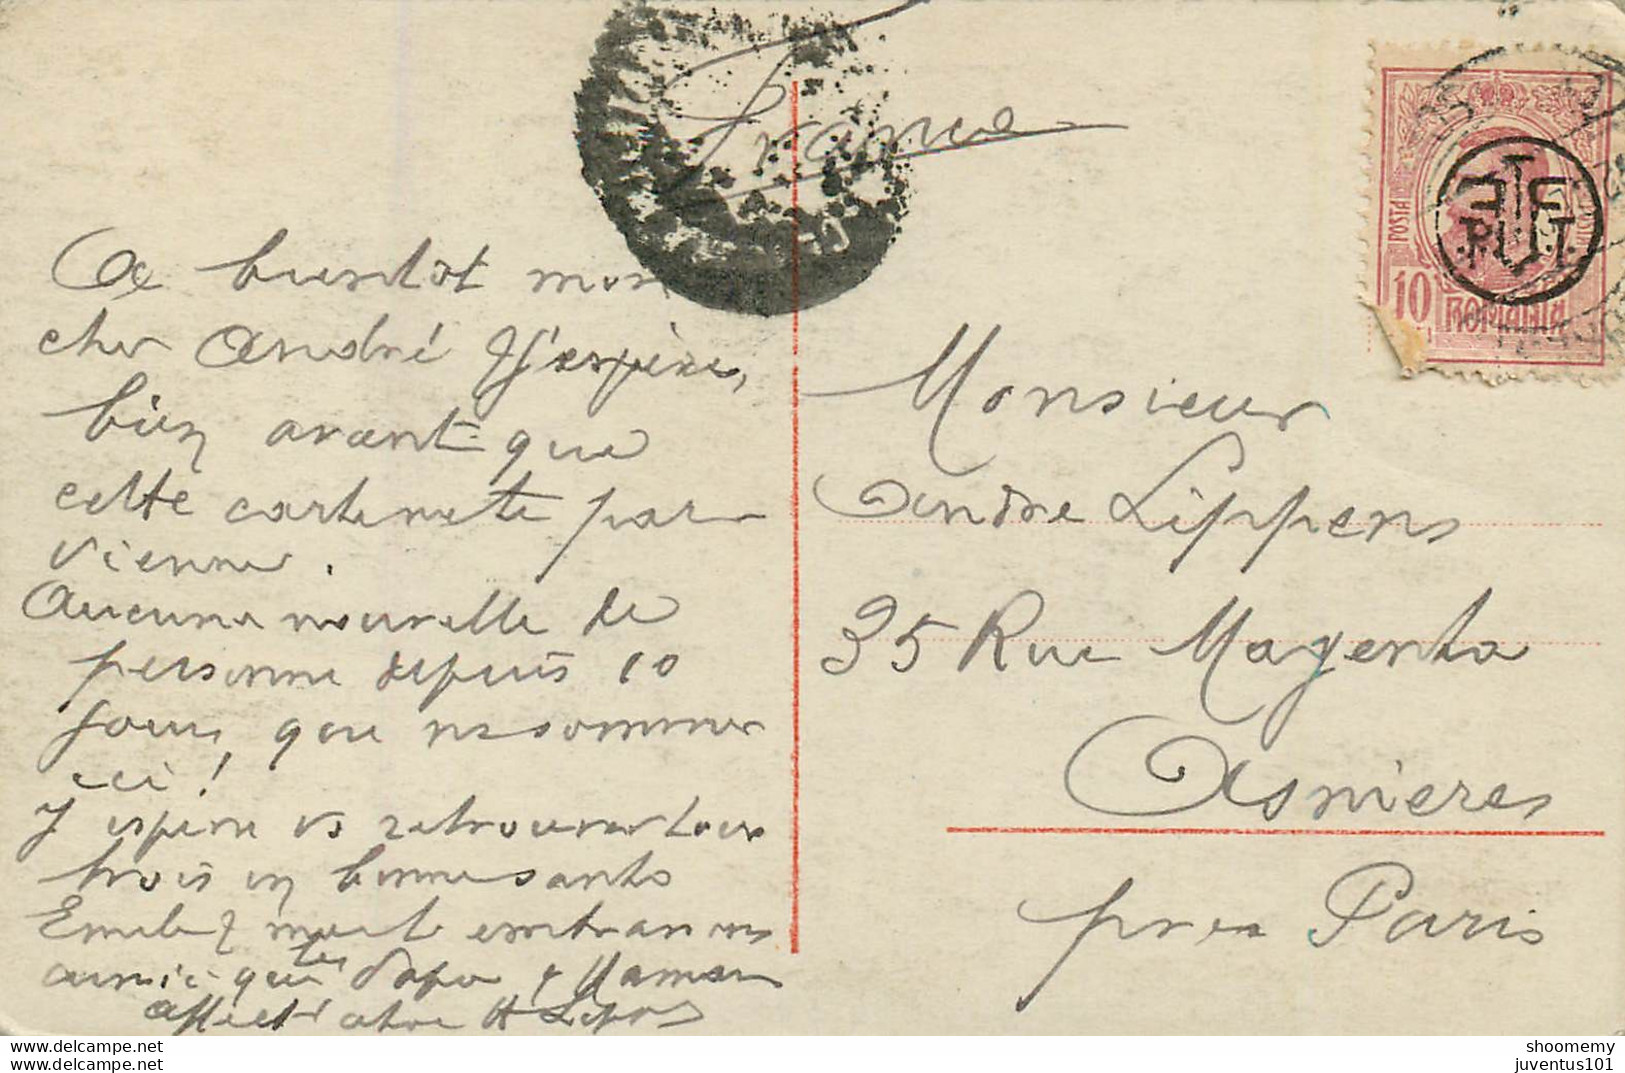 France
A bientôt mon
cher André J'espère,
bien avant que
cette cartenete par
vienne.
Aucune nouvelle de
personne depuis 10
jours, que ns sommes
ici!
J'espère vs retrouver tous
trois en bonne santé
aussi que tes Papa & Maman
affect
Monsieur
Andre Lippens
35 Rue Magenta
Asnieres
pres Paris
POSTA
10
ROMANIA
www.delcampe.net
www.delcampe.net
shoomemy
juventus101